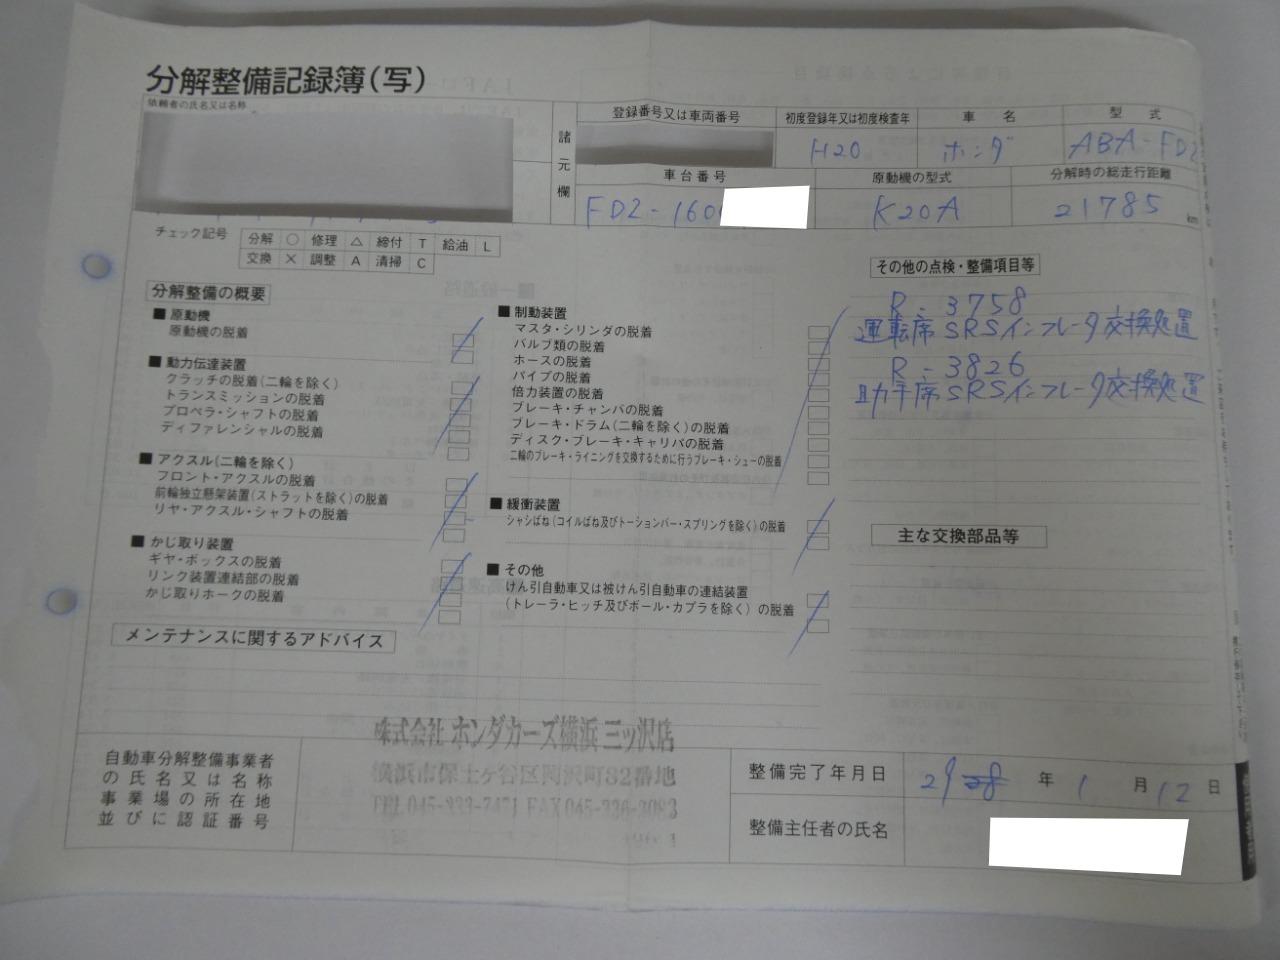 分解整備記録簿(写)
依頼者の氏名又は名称
諸元欄
登録番号又は車両番号
初度登録年又は初度検査年
車名
型式
H20
ホンダ
ABA-FD2
車台番号
原動機の型式
分解時の総走行距離
FD2-160
K20A
21785 km
チェック記号
分解 ○ 修理 △ 締付 T 給油 L
交換 × 調整 A 清掃 C
分解整備の概要
■ 原動機
原動機の脱着
■ 動力伝達装置
クラッチの脱着(二輪を除く)
トランスミッションの脱着
プロペラ・シャフトの脱着
ディファレンシャルの脱着
■ アクスル(二輪を除く)
フロント・アクスルの脱着
前輪独立懸架装置(ストラットを除く)の脱着
リヤ・アクスル・シャフトの脱着
■ かじ取り装置
ギヤ・ボックスの脱着
リンク装置連結部の脱着
かじ取りホークの脱着
■ 制動装置
マスタ・シリンダの脱着
バルブ類の脱着
ホースの脱着
パイプの脱着
倍力装置の脱着
ブレーキ・チャンバの脱着
ブレーキ・ドラム(二輪を除く)の脱着
ディスク・ブレーキ・キャリパの脱着
二輪のブレーキ・ライニングを交換するために行うブレーキ・シューの脱着
■ 緩衝装置
シャシばね(コイルばね及びトーションバー・スプリングを除く)の脱着
■ その他
けん引自動車又は被けん引自動車の連結装置
(トレーラ・ヒッチ及びボール・カプラを除く)の脱着
その他の点検・整備項目等
R-3758
運転席SRSインフレータ交換処置
R-3826
助手席SRSインフレータ交換処置
主な交換部品等
メンテナンスに関するアドバイス
自動車分解整備事業者
の氏名又は名称
事業場の所在地
並びに認証番号
株式会社 ホンダカーズ横浜 三ッ沢店
横浜市保土ヶ谷区岡沢町32番地
TEL 045-333-7471 FAX 045-336-3083
整備完了年月日
29 28 年 1 月 12 日
整備主任者の氏名